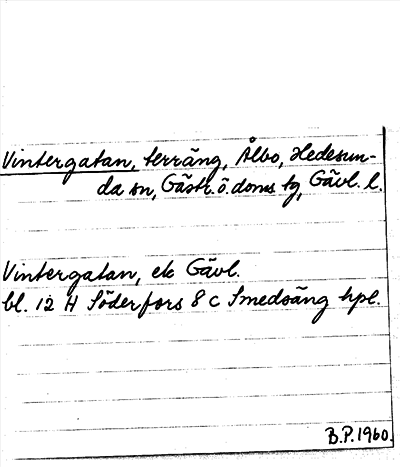 Vintergatan, terräng, Ålbo, Hedesun-
da sn, Gästr. ö. doms tg, Gävl. l.
Vintergatan, ek Gävl.
bl. 12 H Söderfors 8 c Smedsäng hpl.
B.P. 1960.